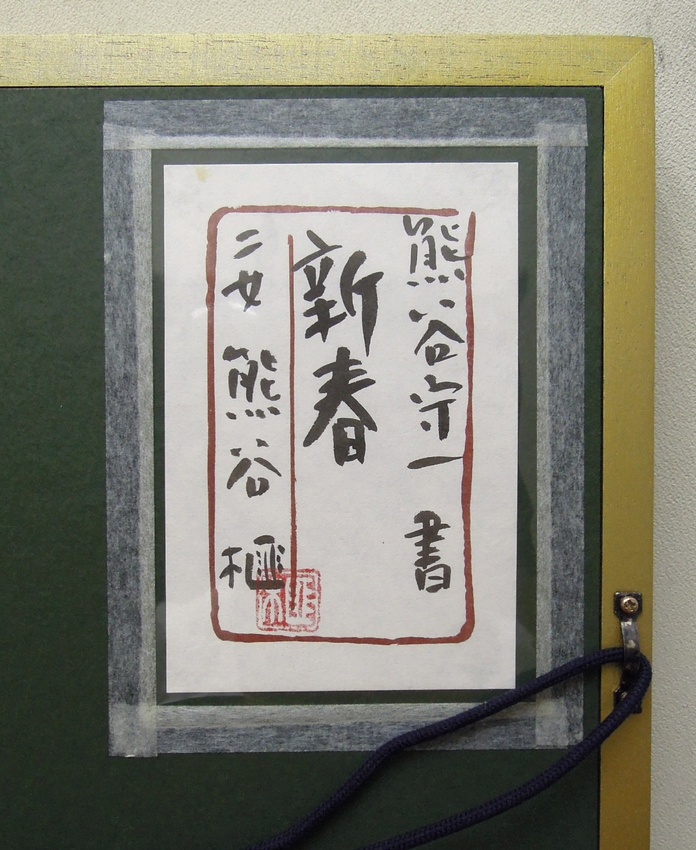 熊谷守一 書
新春
二女 熊谷 榧
榧